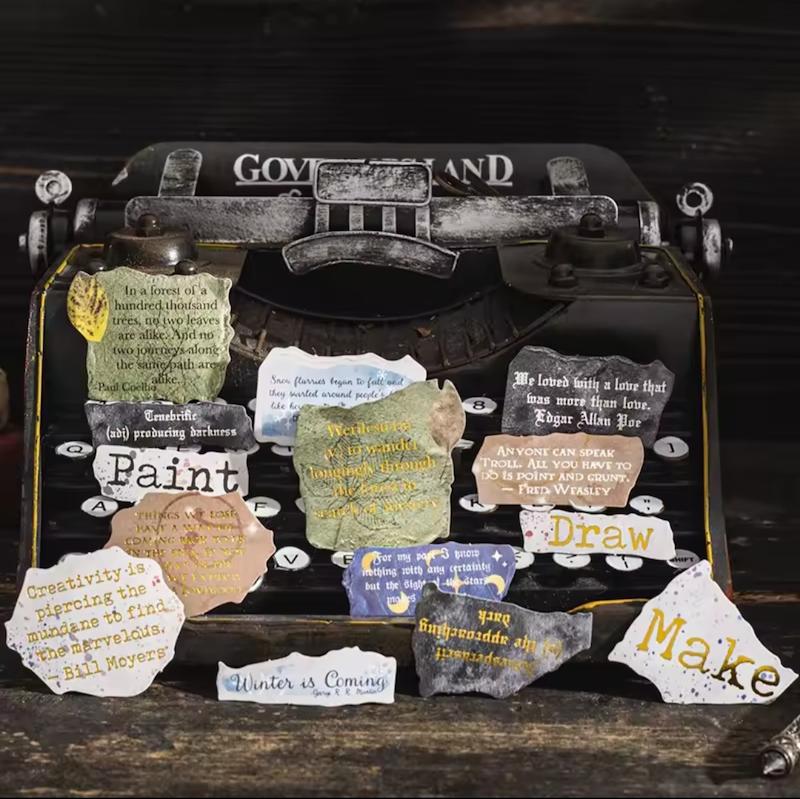 GOV
LAND
In a forest of a
hundred thousand
trees, no two leaves
are alike. And no
two journeys along
the same path are
alike.
-Paul Coelho
Snow flurries began to fall and
they swirled around people's
like
We loved with a love that
was more than love.
Edgar Allan Poe
8
Tenebrific
(adj) producing darkness
to wander
longingly through
the forest in
search of mystery
Anyone can speak
Troll. All you have to
do is point and grunt.
— Fred Weasley
Q
J
Paint
A
F
Things we lose
have a way of
coming back to us
in the end, if not
Draw
V
B
SHIFT
For my part I know
nothing with any certainty
but the sight of the stars
makes
Creativity is
piercing the
mundane to find
the marvelous.
— Bill Moyers
(n) the approaching
dark
Make
Winter is Coming
George R. R. Martin